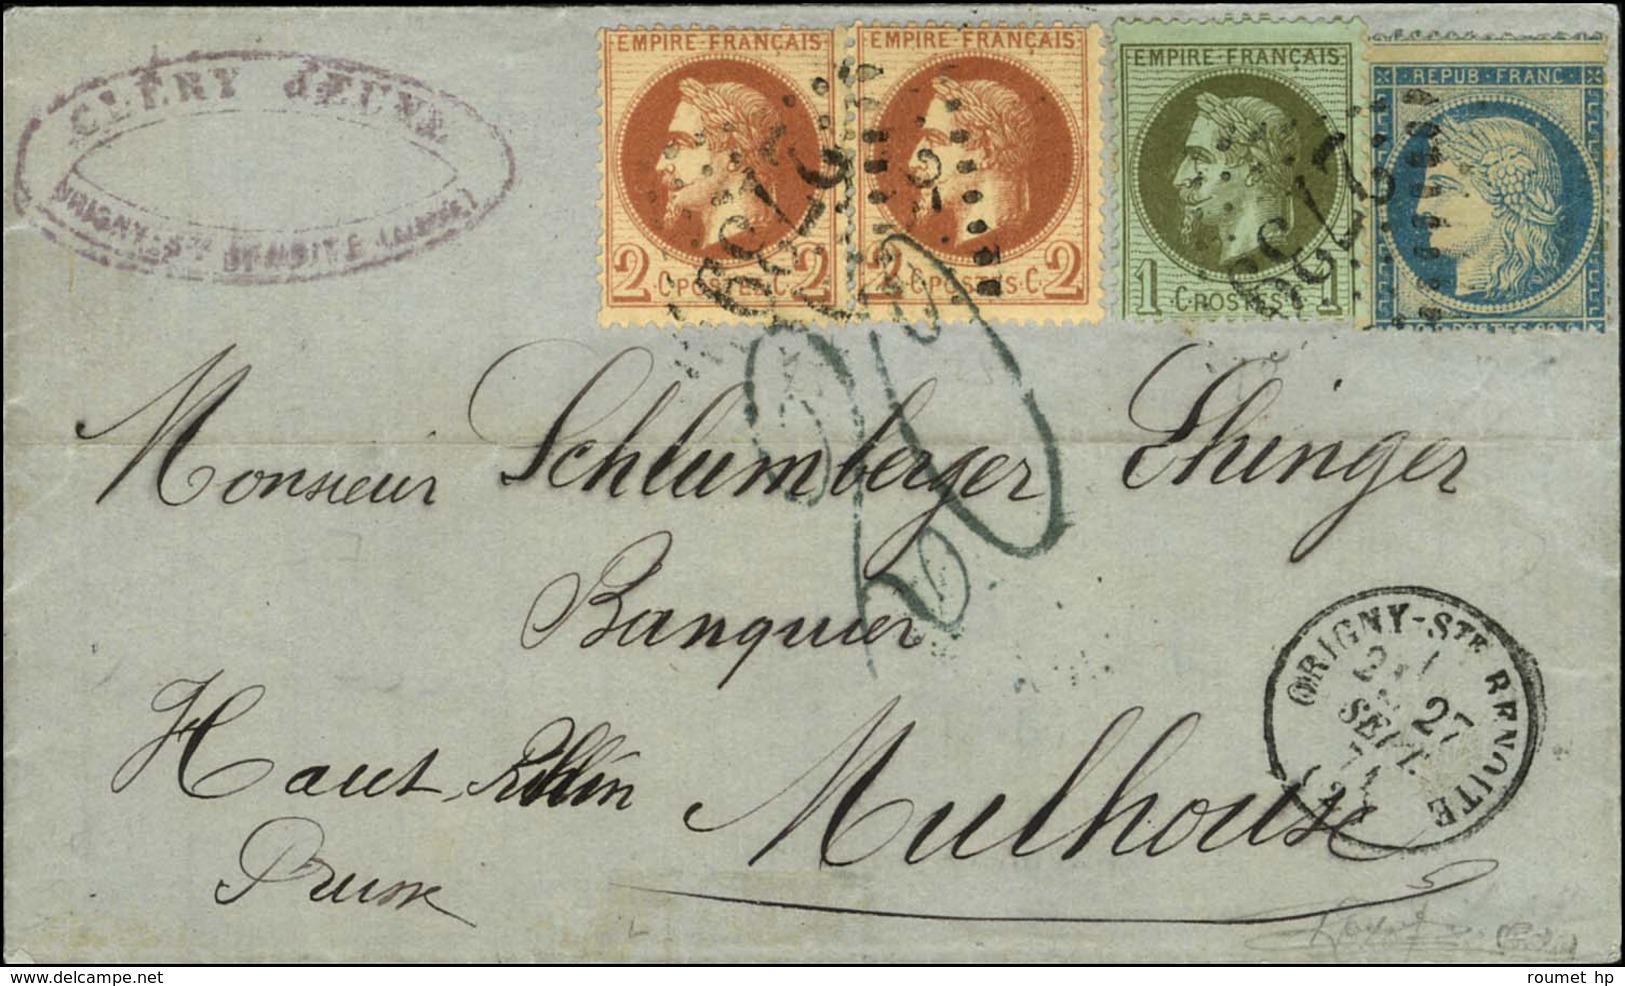 CLÉRY JEUNE
ORIGNY-STE BENOITE (AISNE)
EMPIRE FRANÇAIS
2 C. POSTES. C. 2
EMPIRE FRANÇAIS
2 C. POSTES C. 2
EMPIRE FRANÇAIS
1 C. POSTES 1
REPUB FRANC
2739
2739
Monsieur Schlumberger Ehinger
Banquier
Haut Rhin Mulhouse
Prusse
ORIGNY-STE BENOITE
27
SEPT.
71
(2)
roumet hp